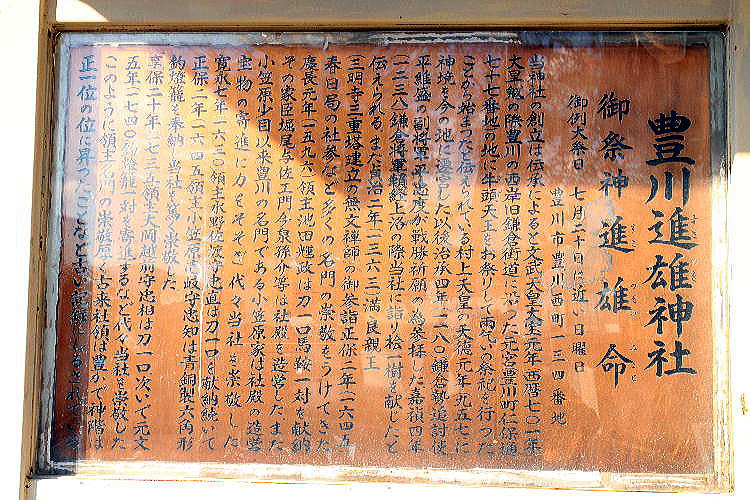 豊川進雄神社
すさのお
御祭神 進雄命
すさ のおの みこと
御例大祭日 七月二十日に近い日曜日
豊川市豊川西町一三四番地
当神社の創立は伝承によると文武天皇大宝元年西暦七〇一年
大皇親の際豊川の西岸旧鎌倉街道に沿った元宮豊川町仁保通
七十七番地の地に牛頭天王をお祭りして雨乞の祭祀を行った
ことから始まったと伝えられている村上天皇の天徳元年九五七に
神境を今の地に遷宮した以後治承四年一一八〇鎌倉勢追討使
平維盛の副将軍平忠度が戦勝祈願の為参拝した嘉禎四年
(一二三八)鎌倉将軍頼経上洛の際当社に詣り桧一樹を献じたと
伝えられる、また貞治二年一三六三満良親王
(三明寺三重塔建立の無文禅師)の御参詣正保二年(一六四五
春日局の社参など多くの名門の崇敬をうけてきた
慶長元年(一五九六)領主池田輝政は刀一口馬鞍一対を献納
その家臣堀尾与左エ門今泉孫介等は社殿を造営したまた
小笠原少目以来豊川の名門である小笠原家は社殿の造営
宝物の寄進に力をそそぎ代々当社を崇敬した
寛永七年一六三〇領主水野佐渡守忠直は刀一口を献納続いて
正保二年一六四五領主小笠原壱岐守忠知は青銅製六角形
釣燈籠を奉納し当社を篤く崇敬した
享保二十年一七三五領主大岡越前守忠相は刀一口次いで元文
五年(一七四〇)釣燈籠一対を寄進するなど代々当社を崇敬した
このように領主名門の崇敬厚く古来社領は豊かで神階は
正一位の位に昇ったことなど古い記録にしるされている